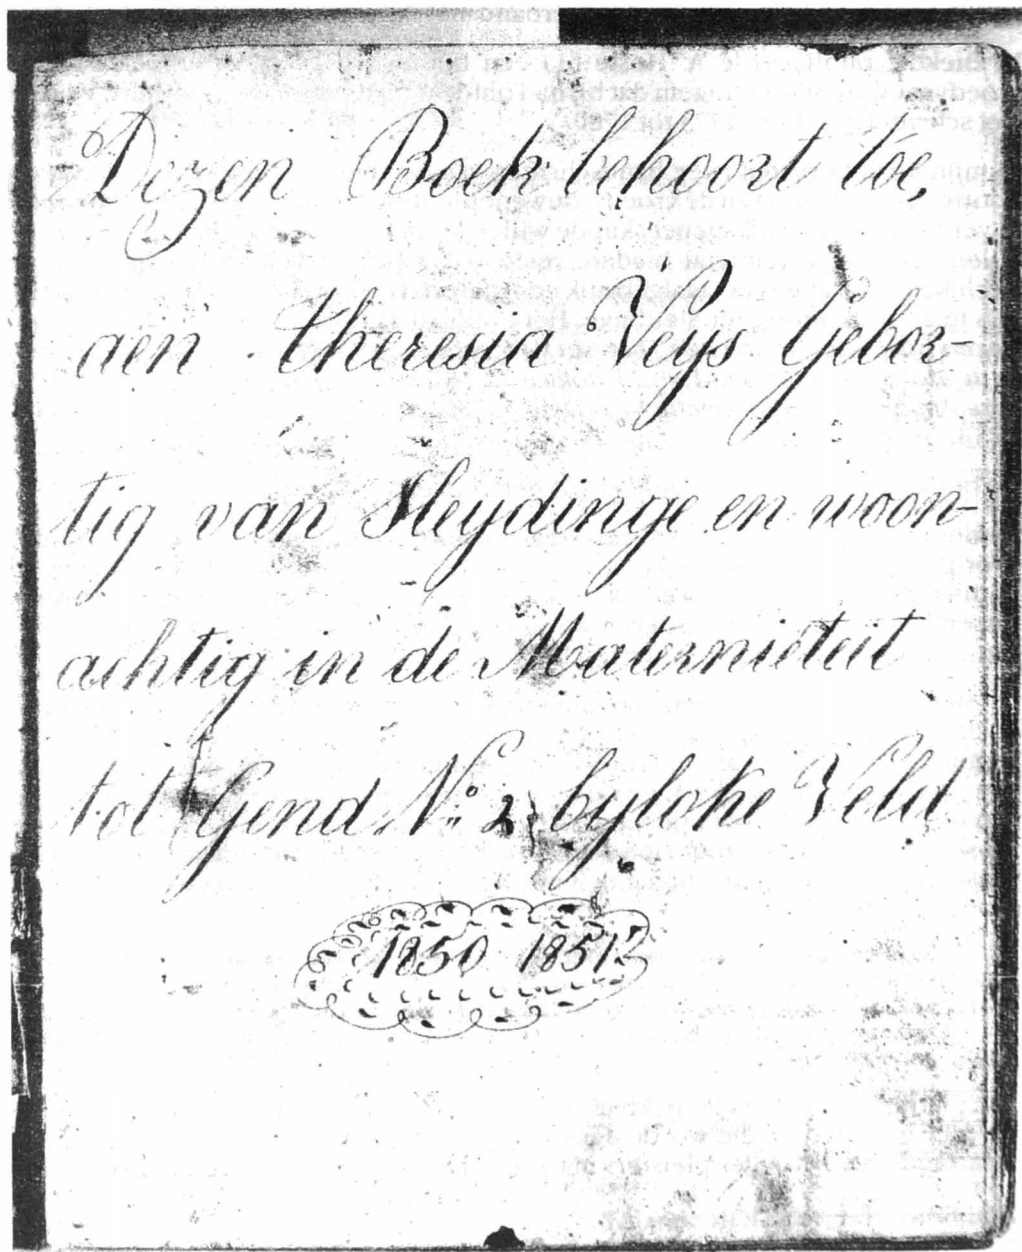 Dezen Boek behoort toe,
aen Theresia Veys Gebor-
tig van Sleydinge en woon-
achtig in de Materniteit
tot Gend N.º 2 byloke Veld
1850 1851